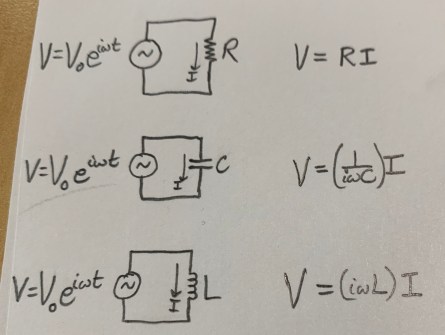 V=V₀e^{iωt} ~ I R V = RI
V=V₀e^{iωt} ~ I C V = (1/iωC)I
V=V₀e^{iωt} ~ I L V = (iωL)I